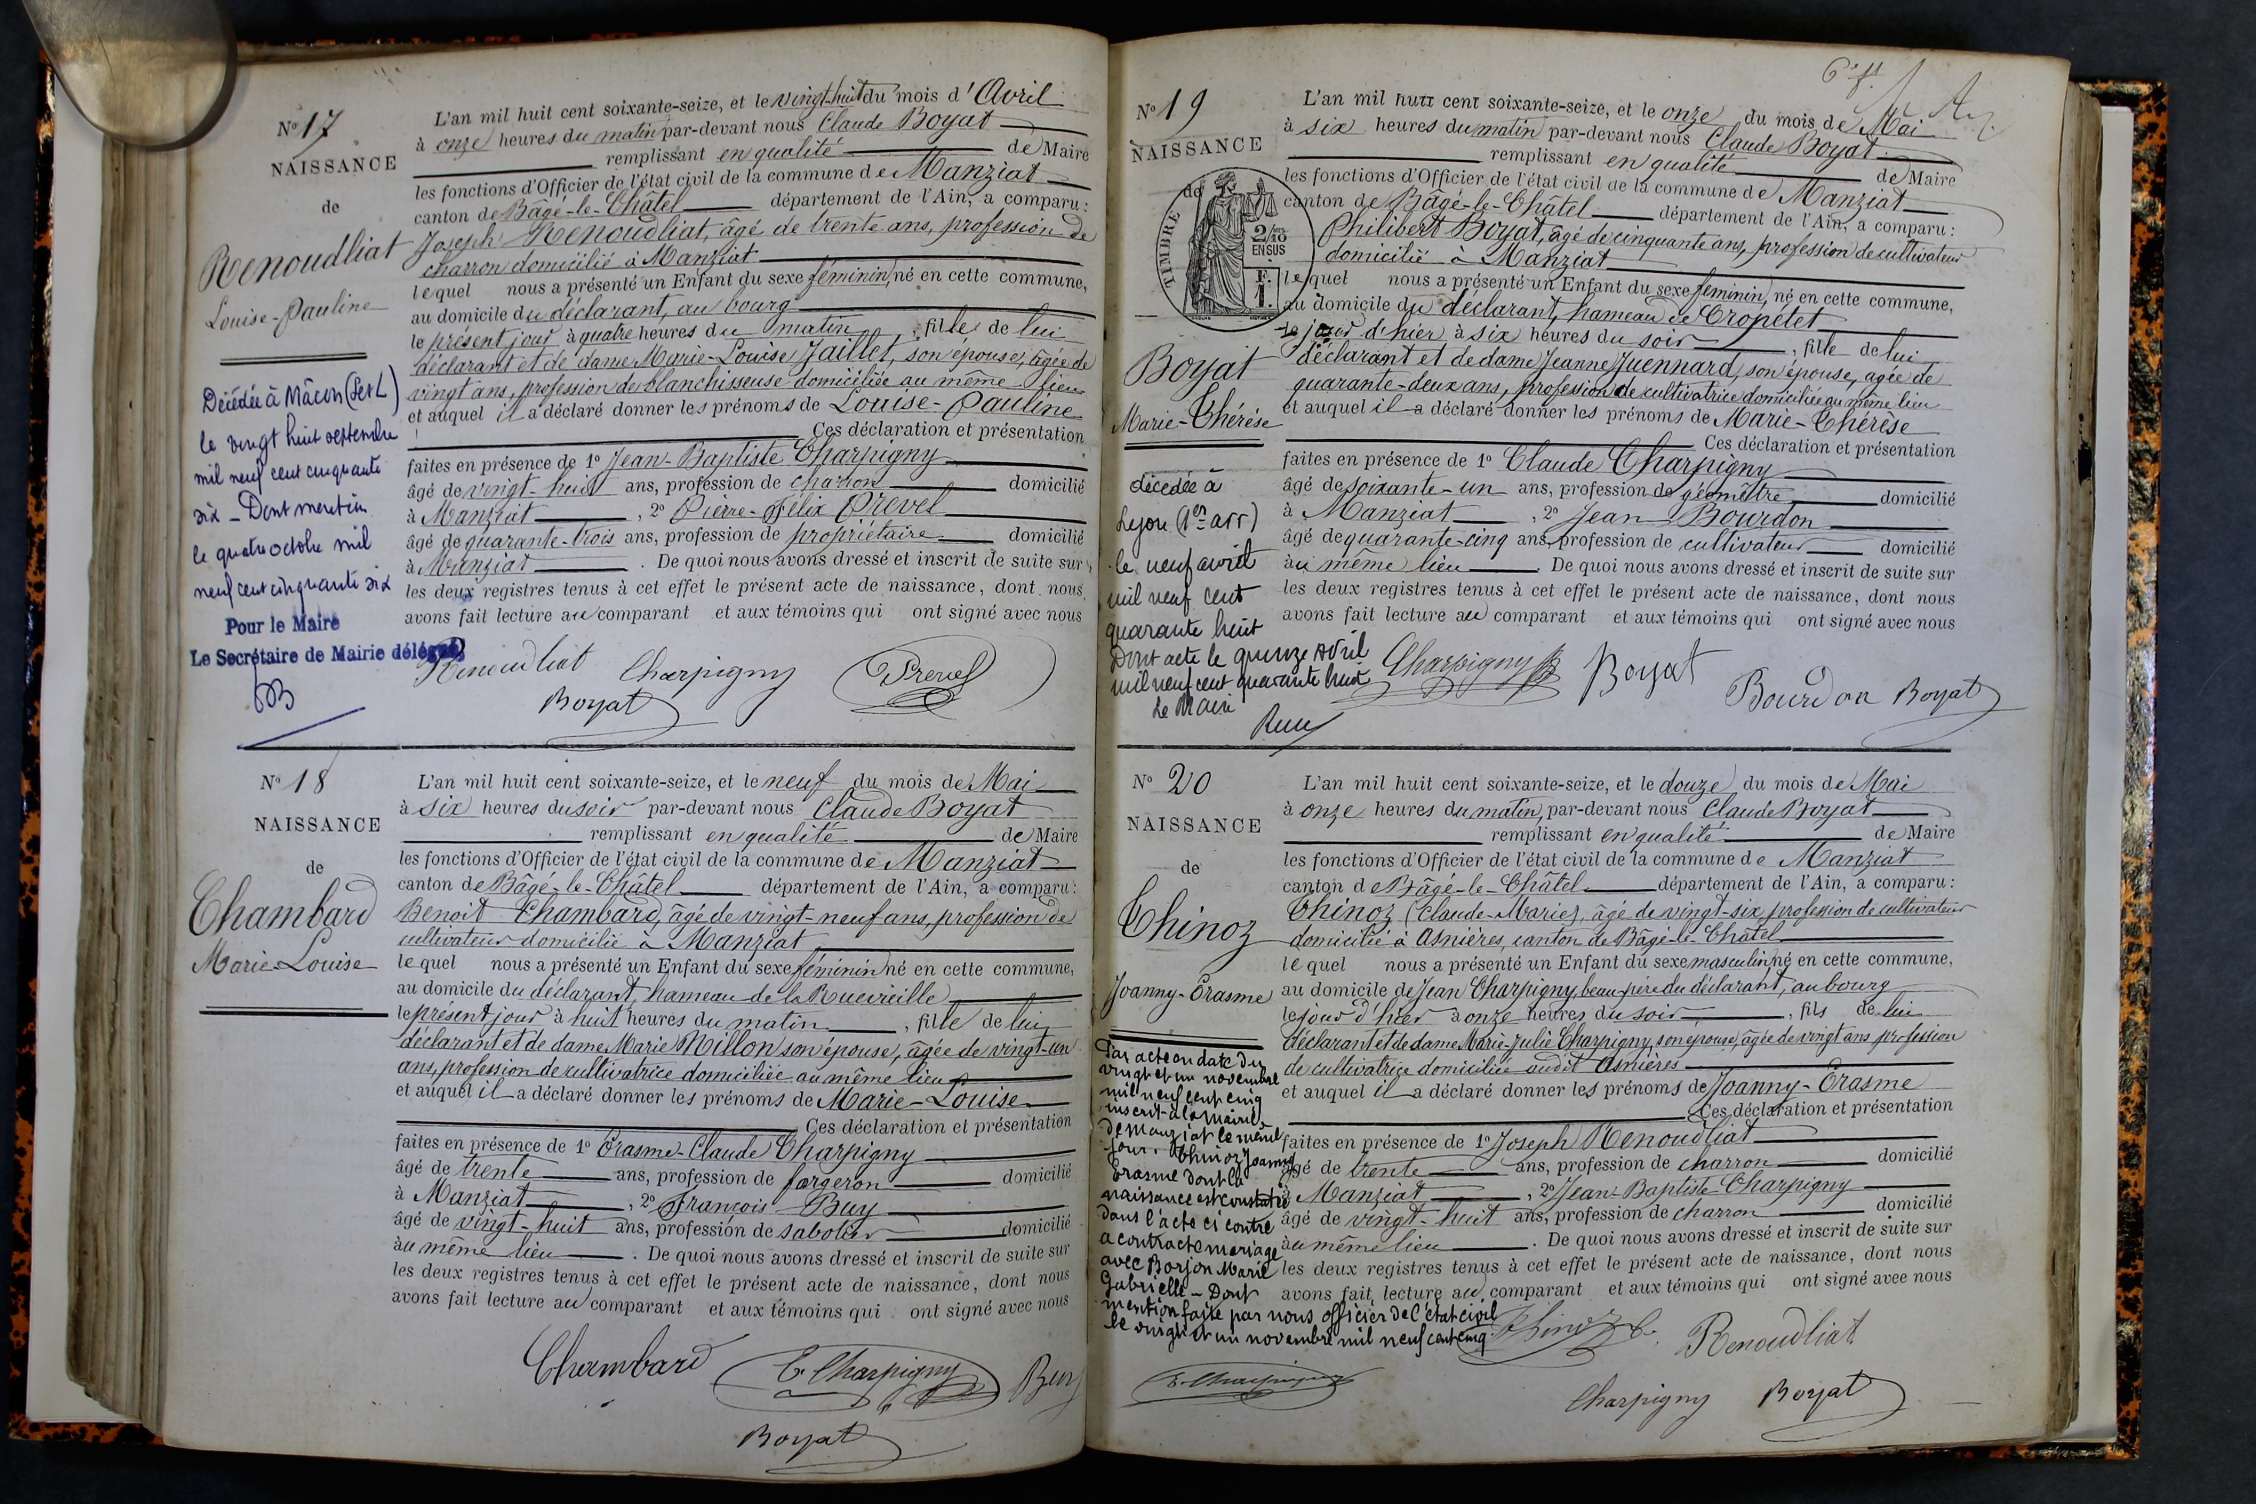 N° 17
NAISSANCE
de
Renoudliat
Louise-Pauline
Décédée à Mâcon (S et L)
le vingt huit septembre
mil neuf cent cinquante
six _ Dont mention
le quatre octobre mil
neuf cent cinquante six
Pour le Maire
Le Secrétaire de Mairie délégué
L'an mil huit cent soixante-seize, et le vingt-huit du mois d'Avril
à onze heures du matin par-devant nous Claude Boyat
remplissant en qualité de Maire
les fonctions d'Officier de l'état civil de la commune de Manziat
canton de Bâgé-le-Châtel département de l'Ain, a comparu :
Joseph Renoudliat, âgé de trente ans, profession de
charron domicilié à Manziat
lequel nous a présenté un Enfant du sexe féminin, né en cette commune,
au domicile du déclarant, au bourg
le présent jour à quatre heures du matin, fille de lui
déclarant et de dame Marie-Louise Jaillet, son épouse, âgée de
vingt ans, profession de blanchisseuse domiciliée au même lieu
et auquel il a déclaré donner les prénoms de Louise-Pauline
Ces déclaration et présentation
faites en présence de 1° Jean-Baptiste Charpigny
âgé de vingt-huit ans, profession de charron domicilié
à Manziat, 2° Pierre-Félix Prevel
âgé de quarante-trois ans, profession de propriétaire domicilié
à Manziat. De quoi nous avons dressé et inscrit de suite sur
les deux registres tenus à cet effet le présent acte de naissance, dont nous
avons fait lecture au comparant et aux témoins qui ont signé avec nous
Renoudliat Charpigny Prevel
Boyat
N° 18
NAISSANCE
de
Chambard
Marie-Louise
L'an mil huit cent soixante-seize, et le neuf du mois de Mai
à six heures du soir par-devant nous Claude Boyat
remplissant en qualité de Maire
les fonctions d'Officier de l'état civil de la commune de Manziat
canton de Bâgé-le-Châtel département de l'Ain, a comparu :
Benoit Chambard, âgé de vingt-neuf ans, profession de
cultivateur domicilié à Manziat
lequel nous a présenté un Enfant du sexe féminin né en cette commune,
au domicile du déclarant, hameau de la
le présent jour à huit heures du matin, fille de lui
déclarant et de dame Marie Millon son épouse, âgée de vingt-un
ans, profession de cultivatrice domiciliée au même lieu
et auquel il a déclaré donner les prénoms de Marie-Louise
Ces déclaration et présentation
faites en présence de 1° Erasme-Claude Charpigny
âgé de trente ans, profession de forgeron domicilié
à Manziat, 2° François Buy
âgé de vingt-huit ans, profession de sabotier domicilié
au même lieu. De quoi nous avons dressé et inscrit de suite sur
les deux registres tenus à cet effet le présent acte de naissance, dont nous
avons fait lecture au comparant et aux témoins qui ont signé avec nous
Chambard E. Charpigny Buy
Boyat
N° 19
NAISSANCE
de
TIMBRE
2/10
EN SUS
F.
1.
Boyat
Marie-Thérèse
décédée à
Lyon (1er arr)
le neuf avril
mil neuf cent
quarante huit
Dont acte le quinze Avril
mil neuf cent quarante huit
Le Maire
L'an mil huit cent soixante-seize, et le onze du mois de Mai
à six heures du matin par-devant nous Claude Boyat
remplissant en qualité de Maire
les fonctions d'Officier de l'état civil de la commune de Manziat
canton de Bâgé-le-Châtel département de l'Ain, a comparu :
Philibert Boyat, âgé de cinquante ans, profession de cultivateur
domicilié à Manziat
lequel nous a présenté un Enfant du sexe féminin, né en cette commune,
au domicile du déclarant, hameau de Cropetet
le jour d'hier à six heures du soir, fille de lui
déclarant et de dame Jeanne Juennard, son épouse, âgée de
quarante-deux ans, profession de cultivatrice domiciliée au même lieu
et auquel il a déclaré donner les prénoms de Marie-Thérèse
Ces déclaration et présentation
faites en présence de 1° Claude Charpigny
âgé de soixante-un ans, profession de géomètre domicilié
à Manziat, 2° Jean Bourdon
âgé de quarante-cinq ans, profession de cultivateur domicilié
au même lieu. De quoi nous avons dressé et inscrit de suite sur
les deux registres tenus à cet effet le présent acte de naissance, dont nous
avons fait lecture au comparant et aux témoins qui ont signé avec nous
Charpigny Boyat
Bourdon Boyat
N° 20
NAISSANCE
de
Thinoz
Joanny-Erasme
Par acte en date du
vingt et un novembre
mil neuf cent cinq
inscrit à la mairie
de Manziat le même
jour, Thinoz Joanny
Erasme dont la
naissance est constatée
dans l'acte ci contre
a contracté mariage
avec Borjon Marie
Gabrielle _ Dont
mention faite par nous officier de l'état civil
le vingt et un novembre mil neuf cent cinq
E. Charpigny
L'an mil huit cent soixante-seize, et le douze du mois de Mai
à onze heures du matin, par-devant nous Claude Boyat
remplissant en qualité de Maire
les fonctions d'Officier de l'état civil de la commune de Manziat
canton de Bâgé-le-Châtel département de l'Ain, a comparu :
Thinoz (Claude-Marie), âgé de vingt-six, profession de cultivateur
domicilié à Asnières, canton de Bâgé-le-Châtel
lequel nous a présenté un Enfant du sexe masculin, né en cette commune,
au domicile de Jean Charpigny, beau-père du déclarant, au bourg
le jour d'hier à onze heures du soir, fils de lui
déclarant et de dame Marie-Julie Charpigny, son épouse, âgée de vingt ans profession
de cultivatrice domiciliée audit Asnières
et auquel il a déclaré donner les prénoms de Joanny-Erasme
Ces déclaration et présentation
faites en présence de 1° Joseph Renoudliat
âgé de trente ans, profession de charron domicilié
à Manziat, 2° Jean-Baptiste Charpigny
âgé de vingt-huit ans, profession de charron domicilié
au même lieu. De quoi nous avons dressé et inscrit de suite sur
les deux registres tenus à cet effet le présent acte de naissance, dont nous
avons fait lecture au comparant et aux témoins qui ont signé avec nous
Thinoz C. Renoudliat
Charpigny Boyat